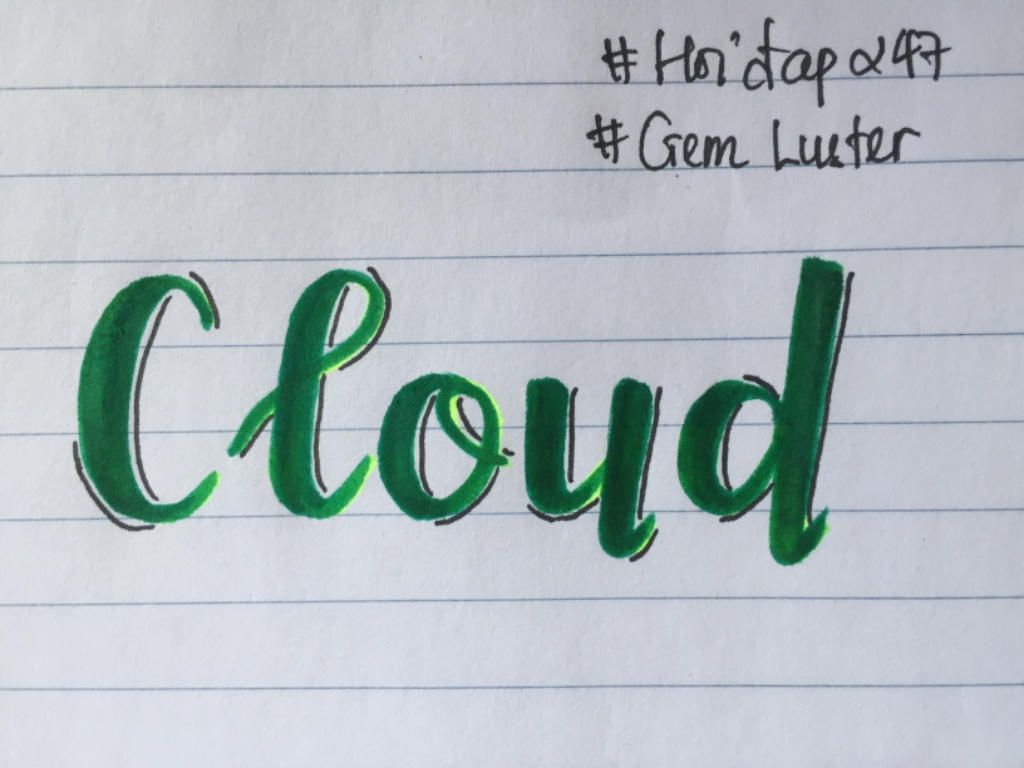 #Hoidap247
#Gem Luster
Cloud